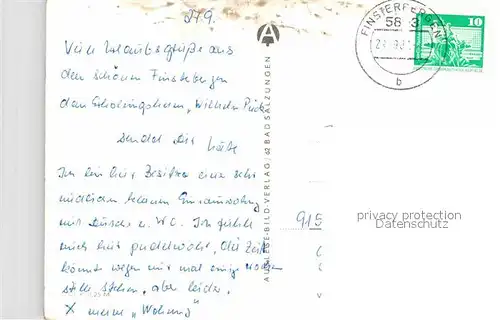 Viele Urlaubsgrüße aus
dem schönen Finsterbergen
dem Erholungsheim, Wilhelm Pieck
sendet Dir Käthe
Ich bin hier Besitzer eine sehr
mit Dusche u. WC. Ich fühl
mich hier pudelwohl, die Zeit
könnte wegen mir mal einige Wochen
stille stehen, aber leider.
X meine „Wohnung"
A
AUSLESE-BILD-VERLAG / 62 BAD SALZUNGEN
FINSTERBERGEN
58
b
10
915
privacy protection
Datenschutz